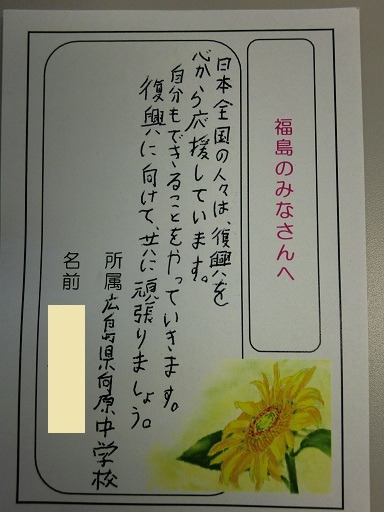 福島のみなさんへ
日本全国の人々は、復興を
心から応援しています。
自分もできることをやっていきます。
復興に向けて、共に頑張りましょう。
所属 広島県向原中学校
名前